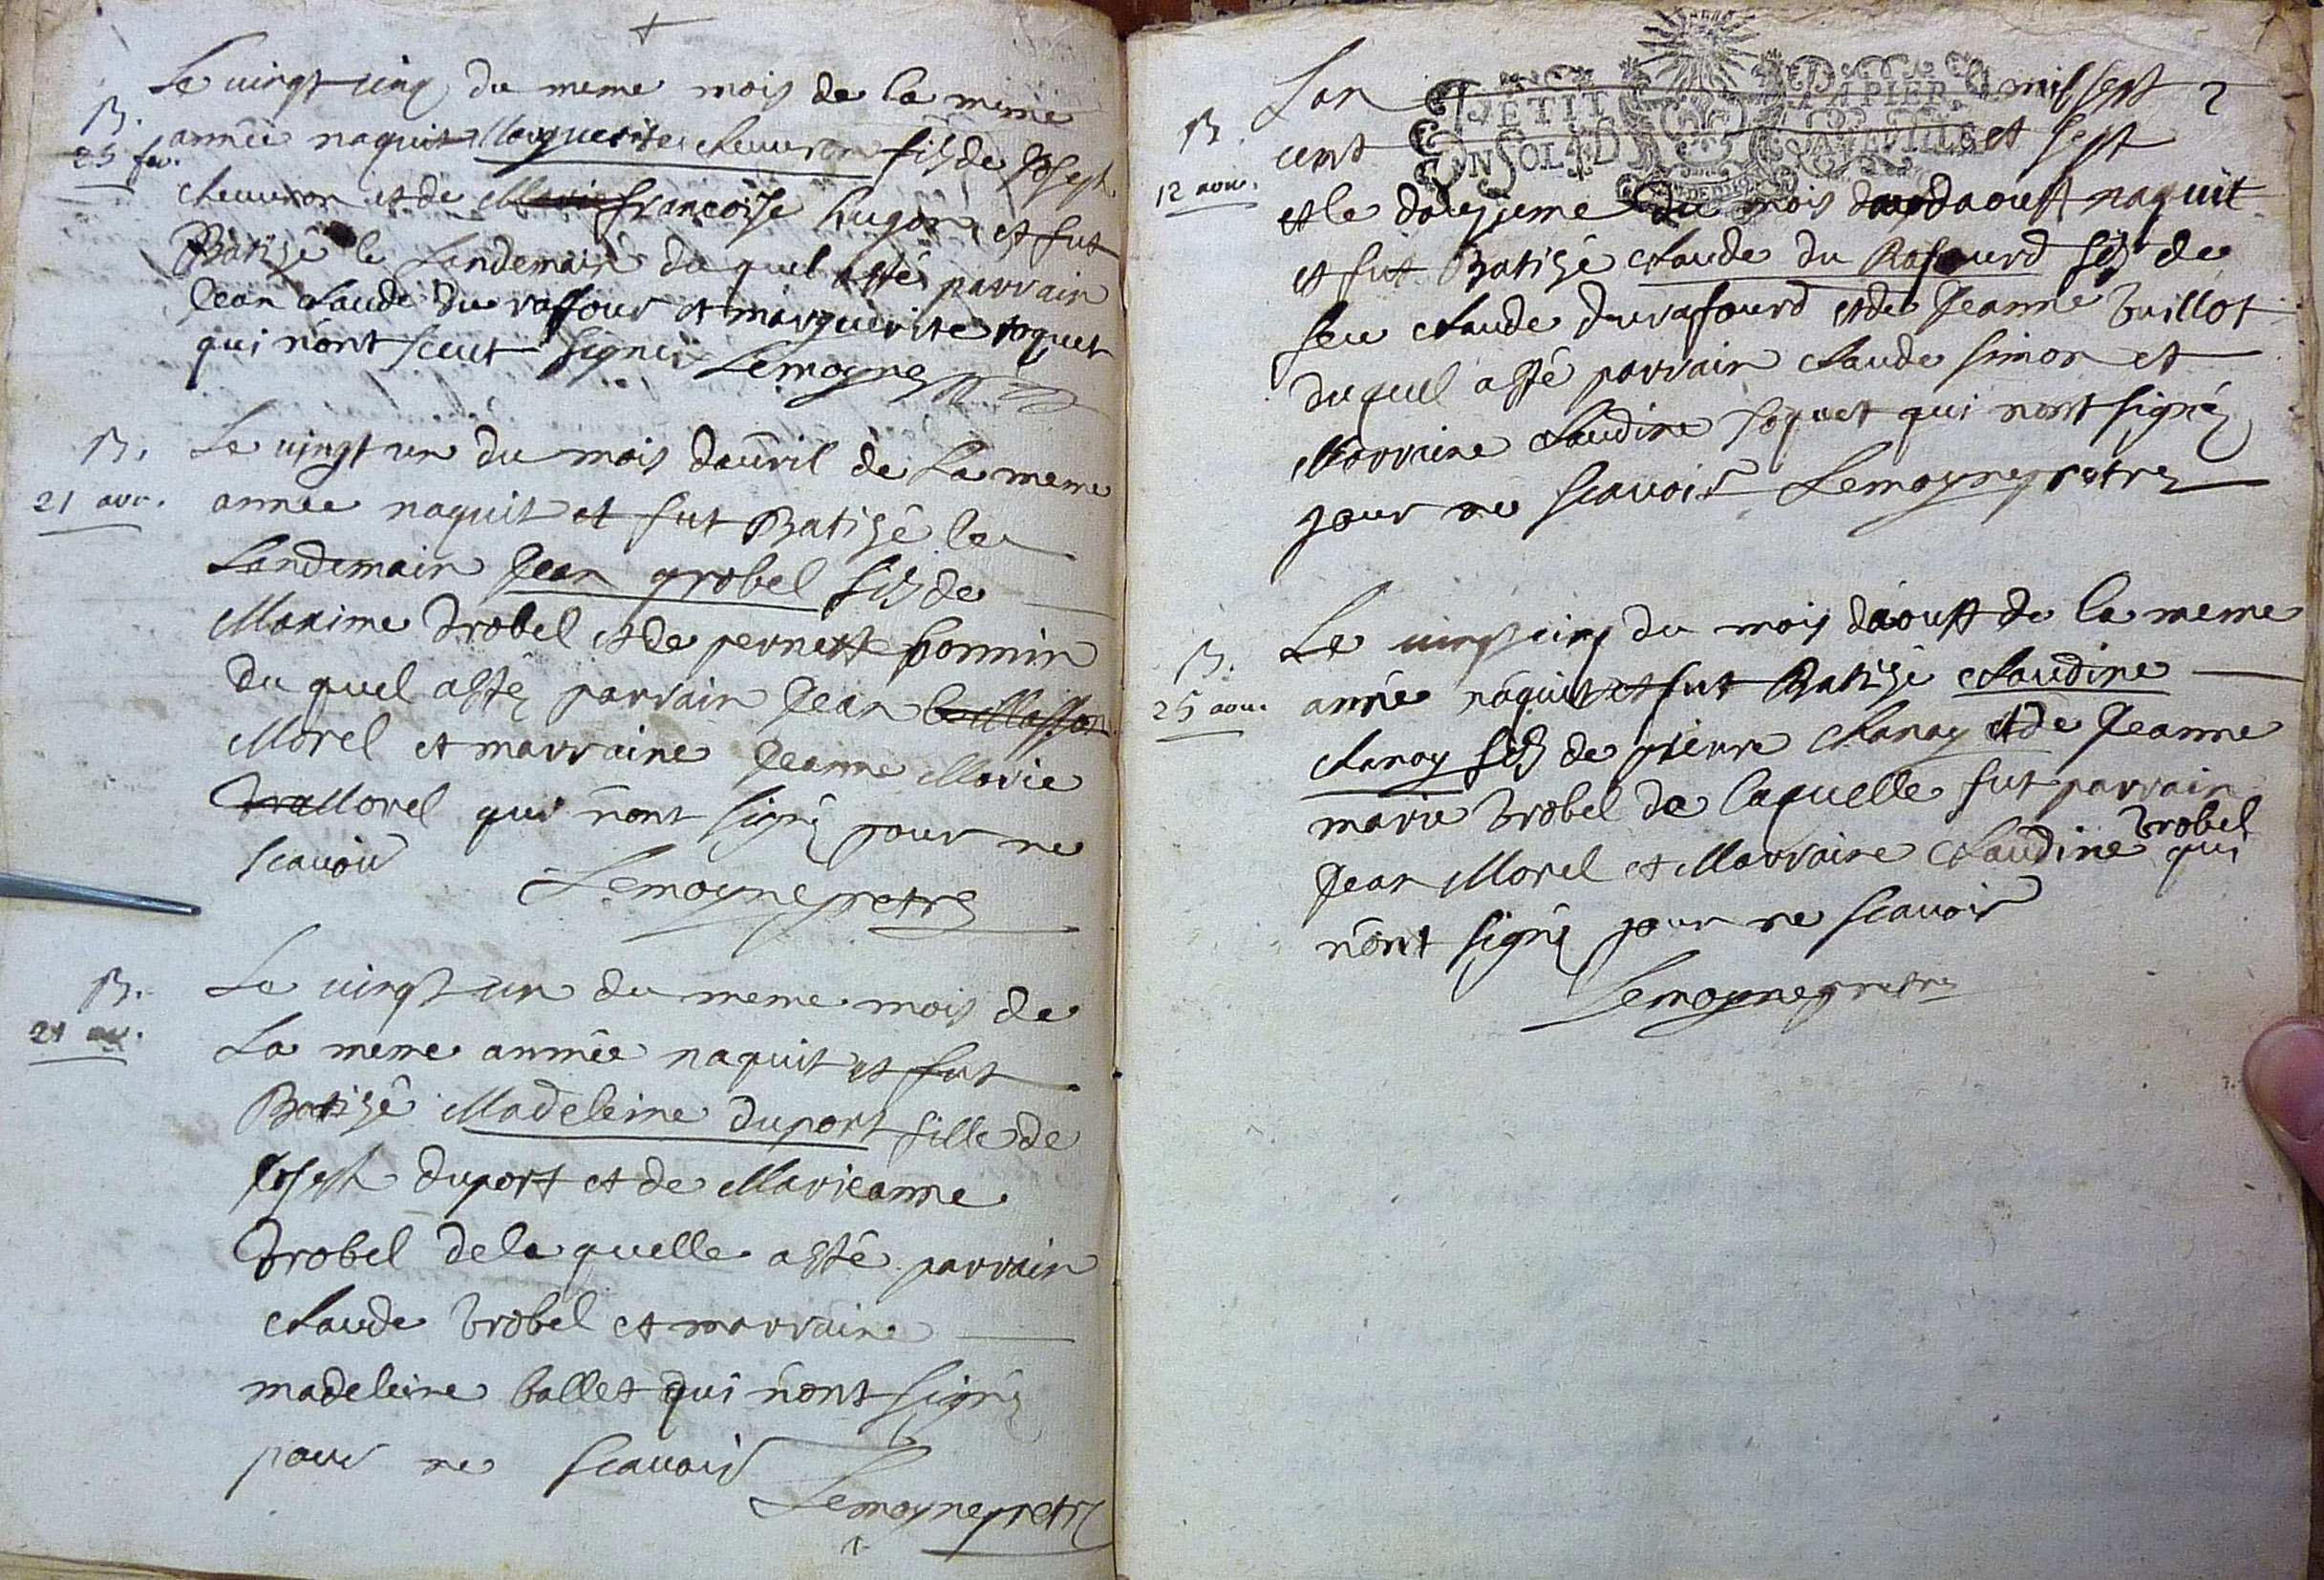 Le vingt cinq du meme mois de la meme
B.
25 fev.
année naquit Marguerite cheuvron fils de Joseph
cheuvron et de Marie françoise hugon et fut
Batisé le Landemain du quel a esté parrain
Jean claude du raffour et marguerite joquet
qui nont sceut signer Lemoyne
B.
21 avr.
Le vingt un du mois dauvril de La meme
année naquit et fut Batisé le
Landemain Jean grobel fils de
Maxime Drobel et de pernette bonnin
du quel a esté parrain Jean
Morel et marraine Jeanne Marie
Morel qui nont signé pour ne
scavoir
Lemoyne pretre
B.
21 av.
Le vingt un du meme mois de
La meme année naquit et fut
Batisé Madeleine duport fille de
Joseph duport et de Marieanne
Drobel de la quelle a esté parrain
claude Drobel et marraine
madeleine ballet qui nont signé
pour ne scavoir
Lemoyne pretre
PETIT PAPIER
UN SOL 4 D LA FEUILLE
B.
12 aou.
Lan mil sept
cent et sept
et le douzieme du mois daoust naquit
et fut Batisé claude du Rafourd fils de
feu claude durafourd et de Jeanne Vuillot
du quel a esté parrain claude simon et
Marraine claudine joquet qui nont signé
pour ne scavoir Lemoyne pretre
B.
25 aou.
Le vingt cinq du mois daoust de la meme
année naquit et fut Batisé claudine
chanay fils de pierre chanay et de Jeanne
marie Drobel de laquelle fut parrain
Jean Morel et Marraine claudine Drobel qui
nont signé pour ne scavoir
Lemoyne pretre